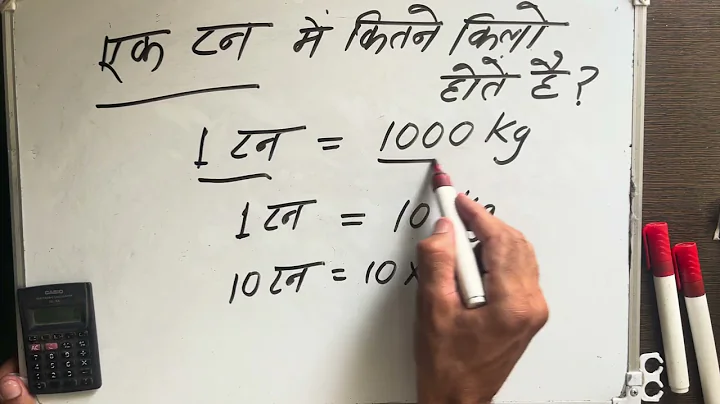 एक टन में कितने किलो
होते है?
1 टन = 1000 Kg
1 टन = 10
10 टन = 10 ×
CASIO